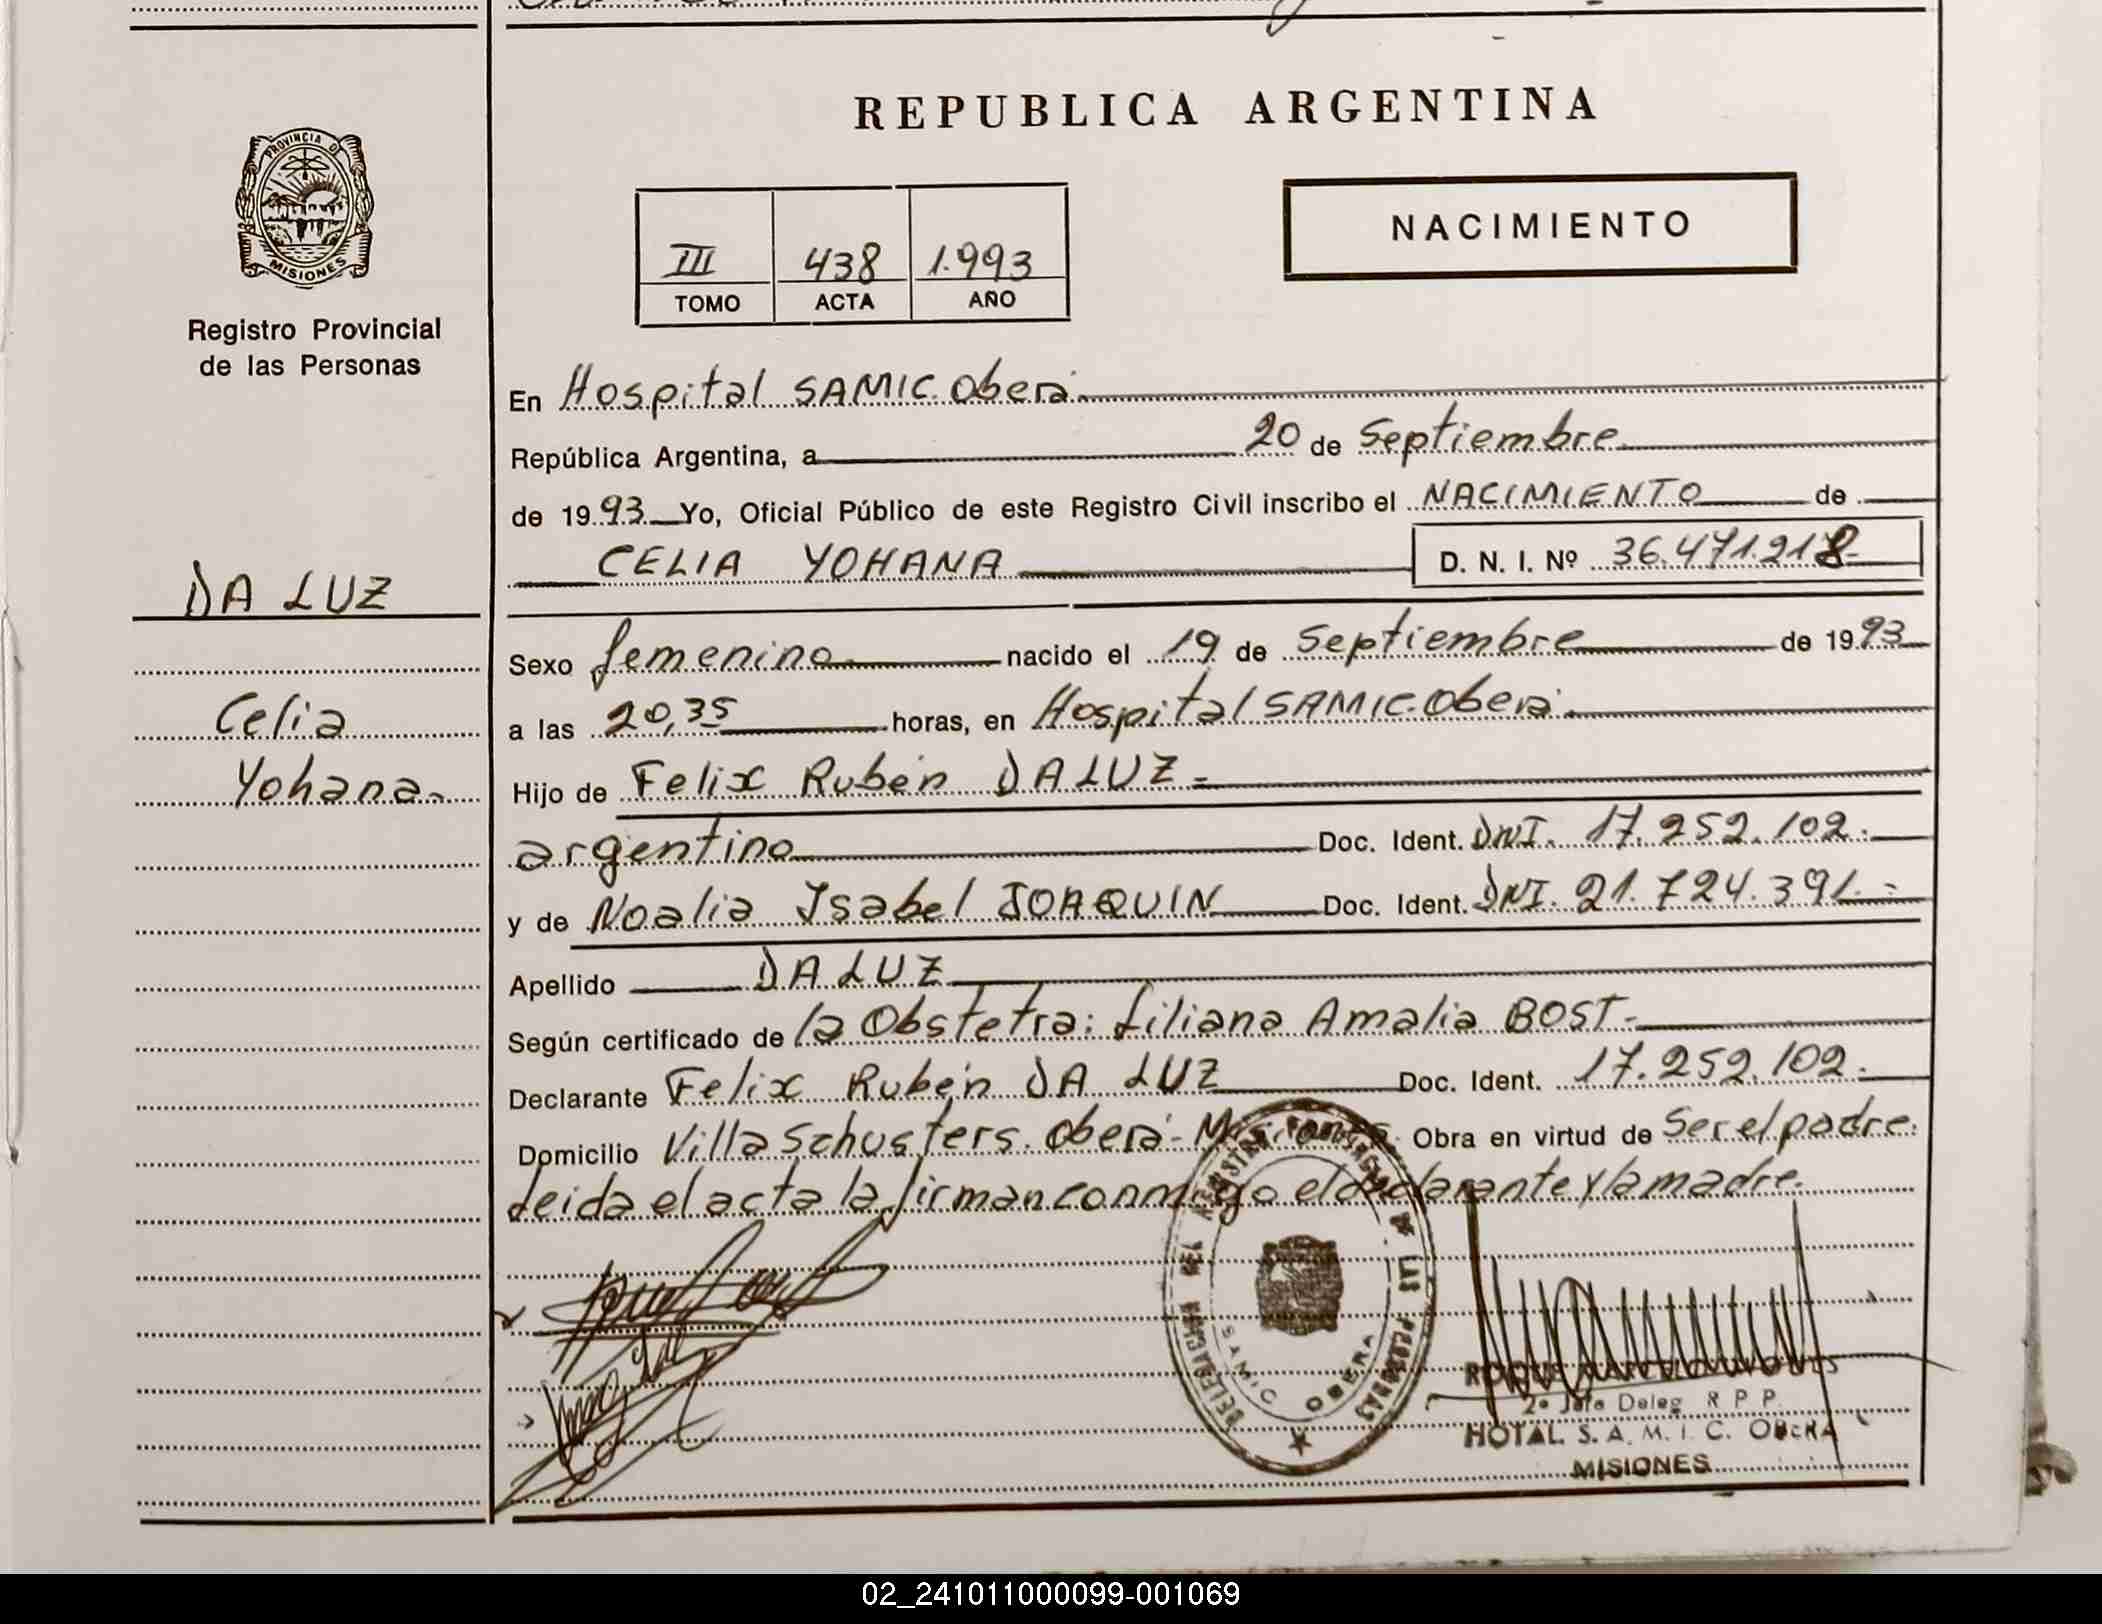 REPUBLICA ARGENTINA
PROVINCIA D
MISIONES
Registro Provincial
de las Personas
NACIMIENTO
III 438 1.993
TOMO ACTA AÑO
En Hospital SAMIC. Oberá.
República Argentina, a 20 de Septiembre
de 1993 Yo, Oficial Público de este Registro Civil inscribo el NACIMIENTO de
CELIA YOHANA D. N. I. Nº 36.471.218
DA LUZ
Celia
Yohana
Sexo femenino nacido el 19 de Septiembre de 1993
a las 20,35 horas, en Hospital SAMIC. Oberá.
Hijo de Felix Rubén DA LUZ
argentino Doc. Ident. DNI. 17.252.102
y de Noalia Isabel JOAQUIN Doc. Ident. DNI. 21.724.391
Apellido DA LUZ
Según certificado de la Obstetra: Liliana Amalia BOST
Declarante Felix Rubén DA LUZ Doc. Ident. 17.252.102
Domicilio Villa Schusters. Oberá - Misiones. Obra en virtud de Ser el padre.
Leida el acta la firman conmigo el declarante y la madre.
DE LAS PERSONAS
SAMIC OBERA
2º Jefe Deleg R P P
HOTAL S. A. M. I. C. OBERA
MISIONES
02_241011000099-001069